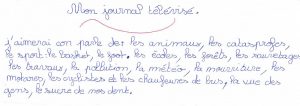 Mon journal télévisé.
j'aimerai con parle de: les animaux, les catastrofes,
le sport: le basket, le foot, les écoles, les forêts, les sauvetages
les travaux, la pollution, la météo, la nourriture, les
motards, les cyclistes et les chaufeures de bus, la vue des
gens, le sucre de nos dent.